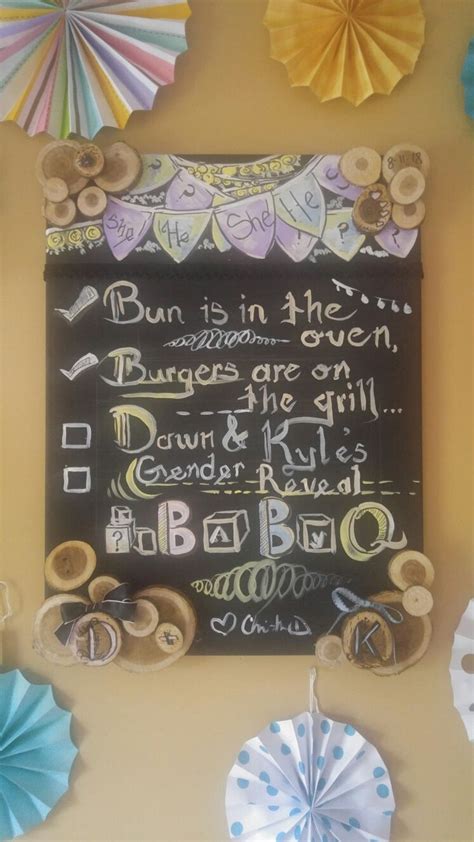 She He She He ?
8-11-18
Bun is in the
oven,
Burgers are on
the grill...
Dawn & Kyle's
Gender Reveal
? BaByQ
D & K